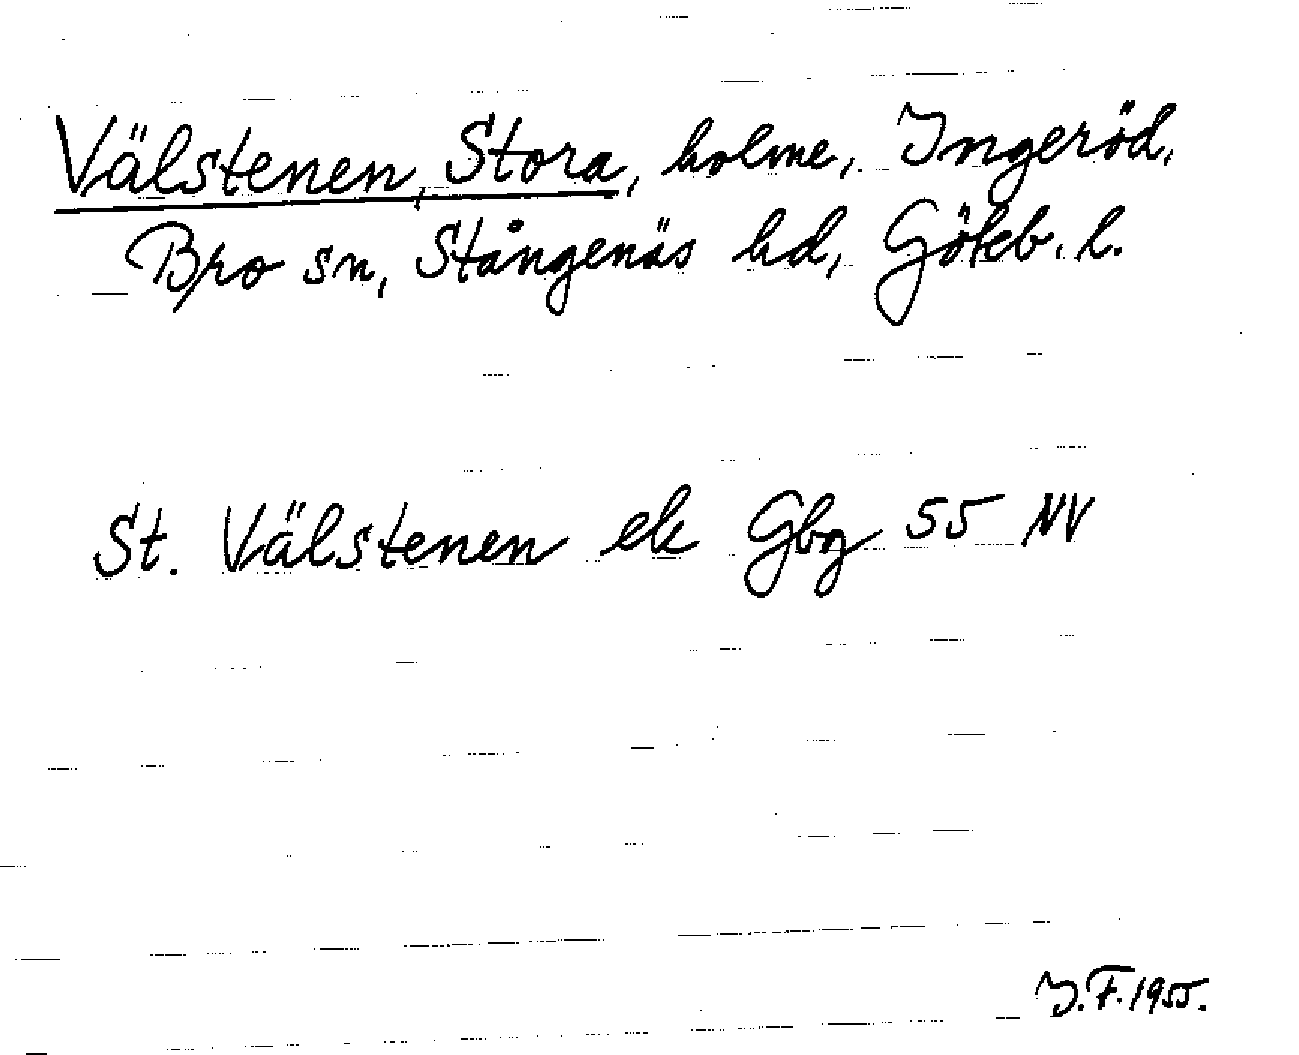 Välstenen, Stora, holme, Ingeröd,
Bro sn, Stångenäs hd, Göteb. l.
St. Välstenen ek Gbg 55 NV
I.F. 1955.